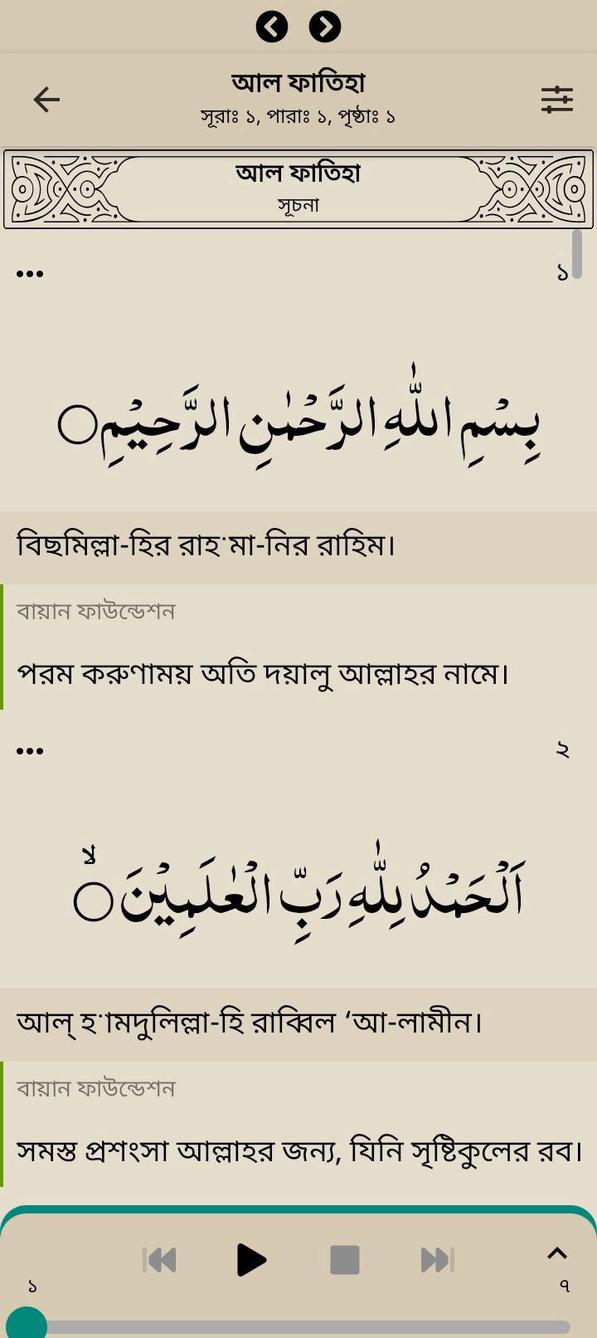 আল ফাতিহা
সূরাঃ ১, পারাঃ ১, পৃষ্ঠাঃ ১
আল ফাতিহা
সূচনা
১
بِسْمِ اللّٰهِ الرَّحْمٰنِ الرَّحِيْمِ○
বিছমিল্লা-হির রাহ˙মা-নির রাহিম।
বায়ান ফাউন্ডেশন
পরম করুণাময় অতি দয়ালু আল্লাহর নামে।
২
اَلْحَمْدُ لِلّٰهِ رَبِّ الْعٰلَمِيْنَ○ۙ
আল্ হ˙ামদুলিল্লা-হি রাব্বিল ‘আ-লামীন।
বায়ান ফাউন্ডেশন
সমস্ত প্রশংসা আল্লাহর জন্য, যিনি সৃষ্টিকুলের রব।
১
৭